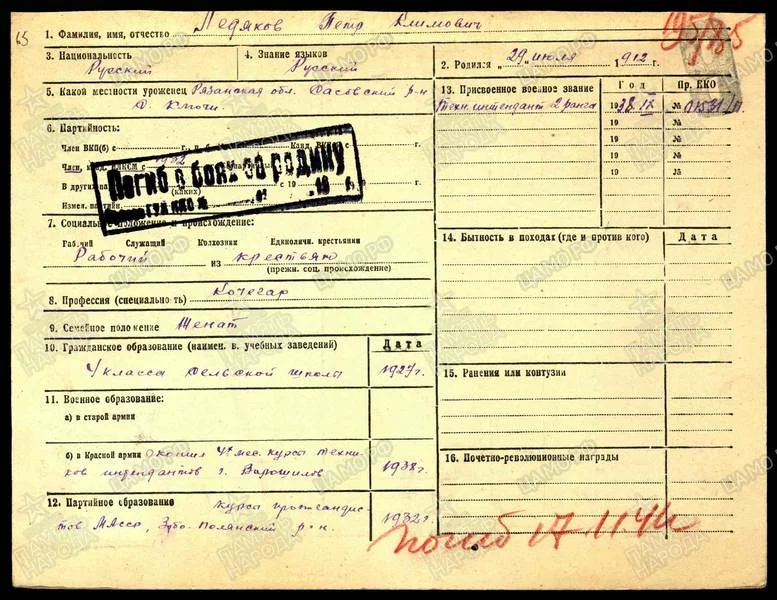 65
1. Фамилия, имя, отчество Ледяков Петр Климович
3. Национальность Русский
4. Знание языков Русский
2. Родился „29" июля 1912 г.
5. Какой местности уроженец Рязанская обл. Сасовский р-н
д. Ключи
6. Партийность:
Член ВКП(б) с г.
Канд. ВКП с г.
1932
В других
(каких)
с 19 г.
Измен. партийн.
Погиб в боях за родину
7. Социальное положение и происхождение:
Рабочий Служащий Колхозник Единоличн. крестьянин
Рабочий из крестьян
(прежн. соц. происхождение)
8. Профессия (специальность) Кочегар
9. Семейное положение Женат
10. Гражданское образование (наимен. в. учебных заведений) Дата
4 класса сельской школы 1927г.
11. Военное образование:
а) в старой армии
б) в Красной армии окончил мес. курсы техни-
ков интендантов г. Ворошилов 1938г.
12. Партийное образование курсы пропагандис-
тов МАССР, Зубо-Полянский р-н. 1932г.
13. Присвоенное военное звание Год Пр. НКО
Техн. интендант 2 ранга 1938 IX № 01531/п
19 №
19 №
19 №
19 №
14. Бытность в походах (где и против кого) Дата
15. Ранения или контузии
16. Почетно-революционные награды
погиб 17.11.41г
ПАМЯТЬ НАРОДА
ЦАМО.РФ